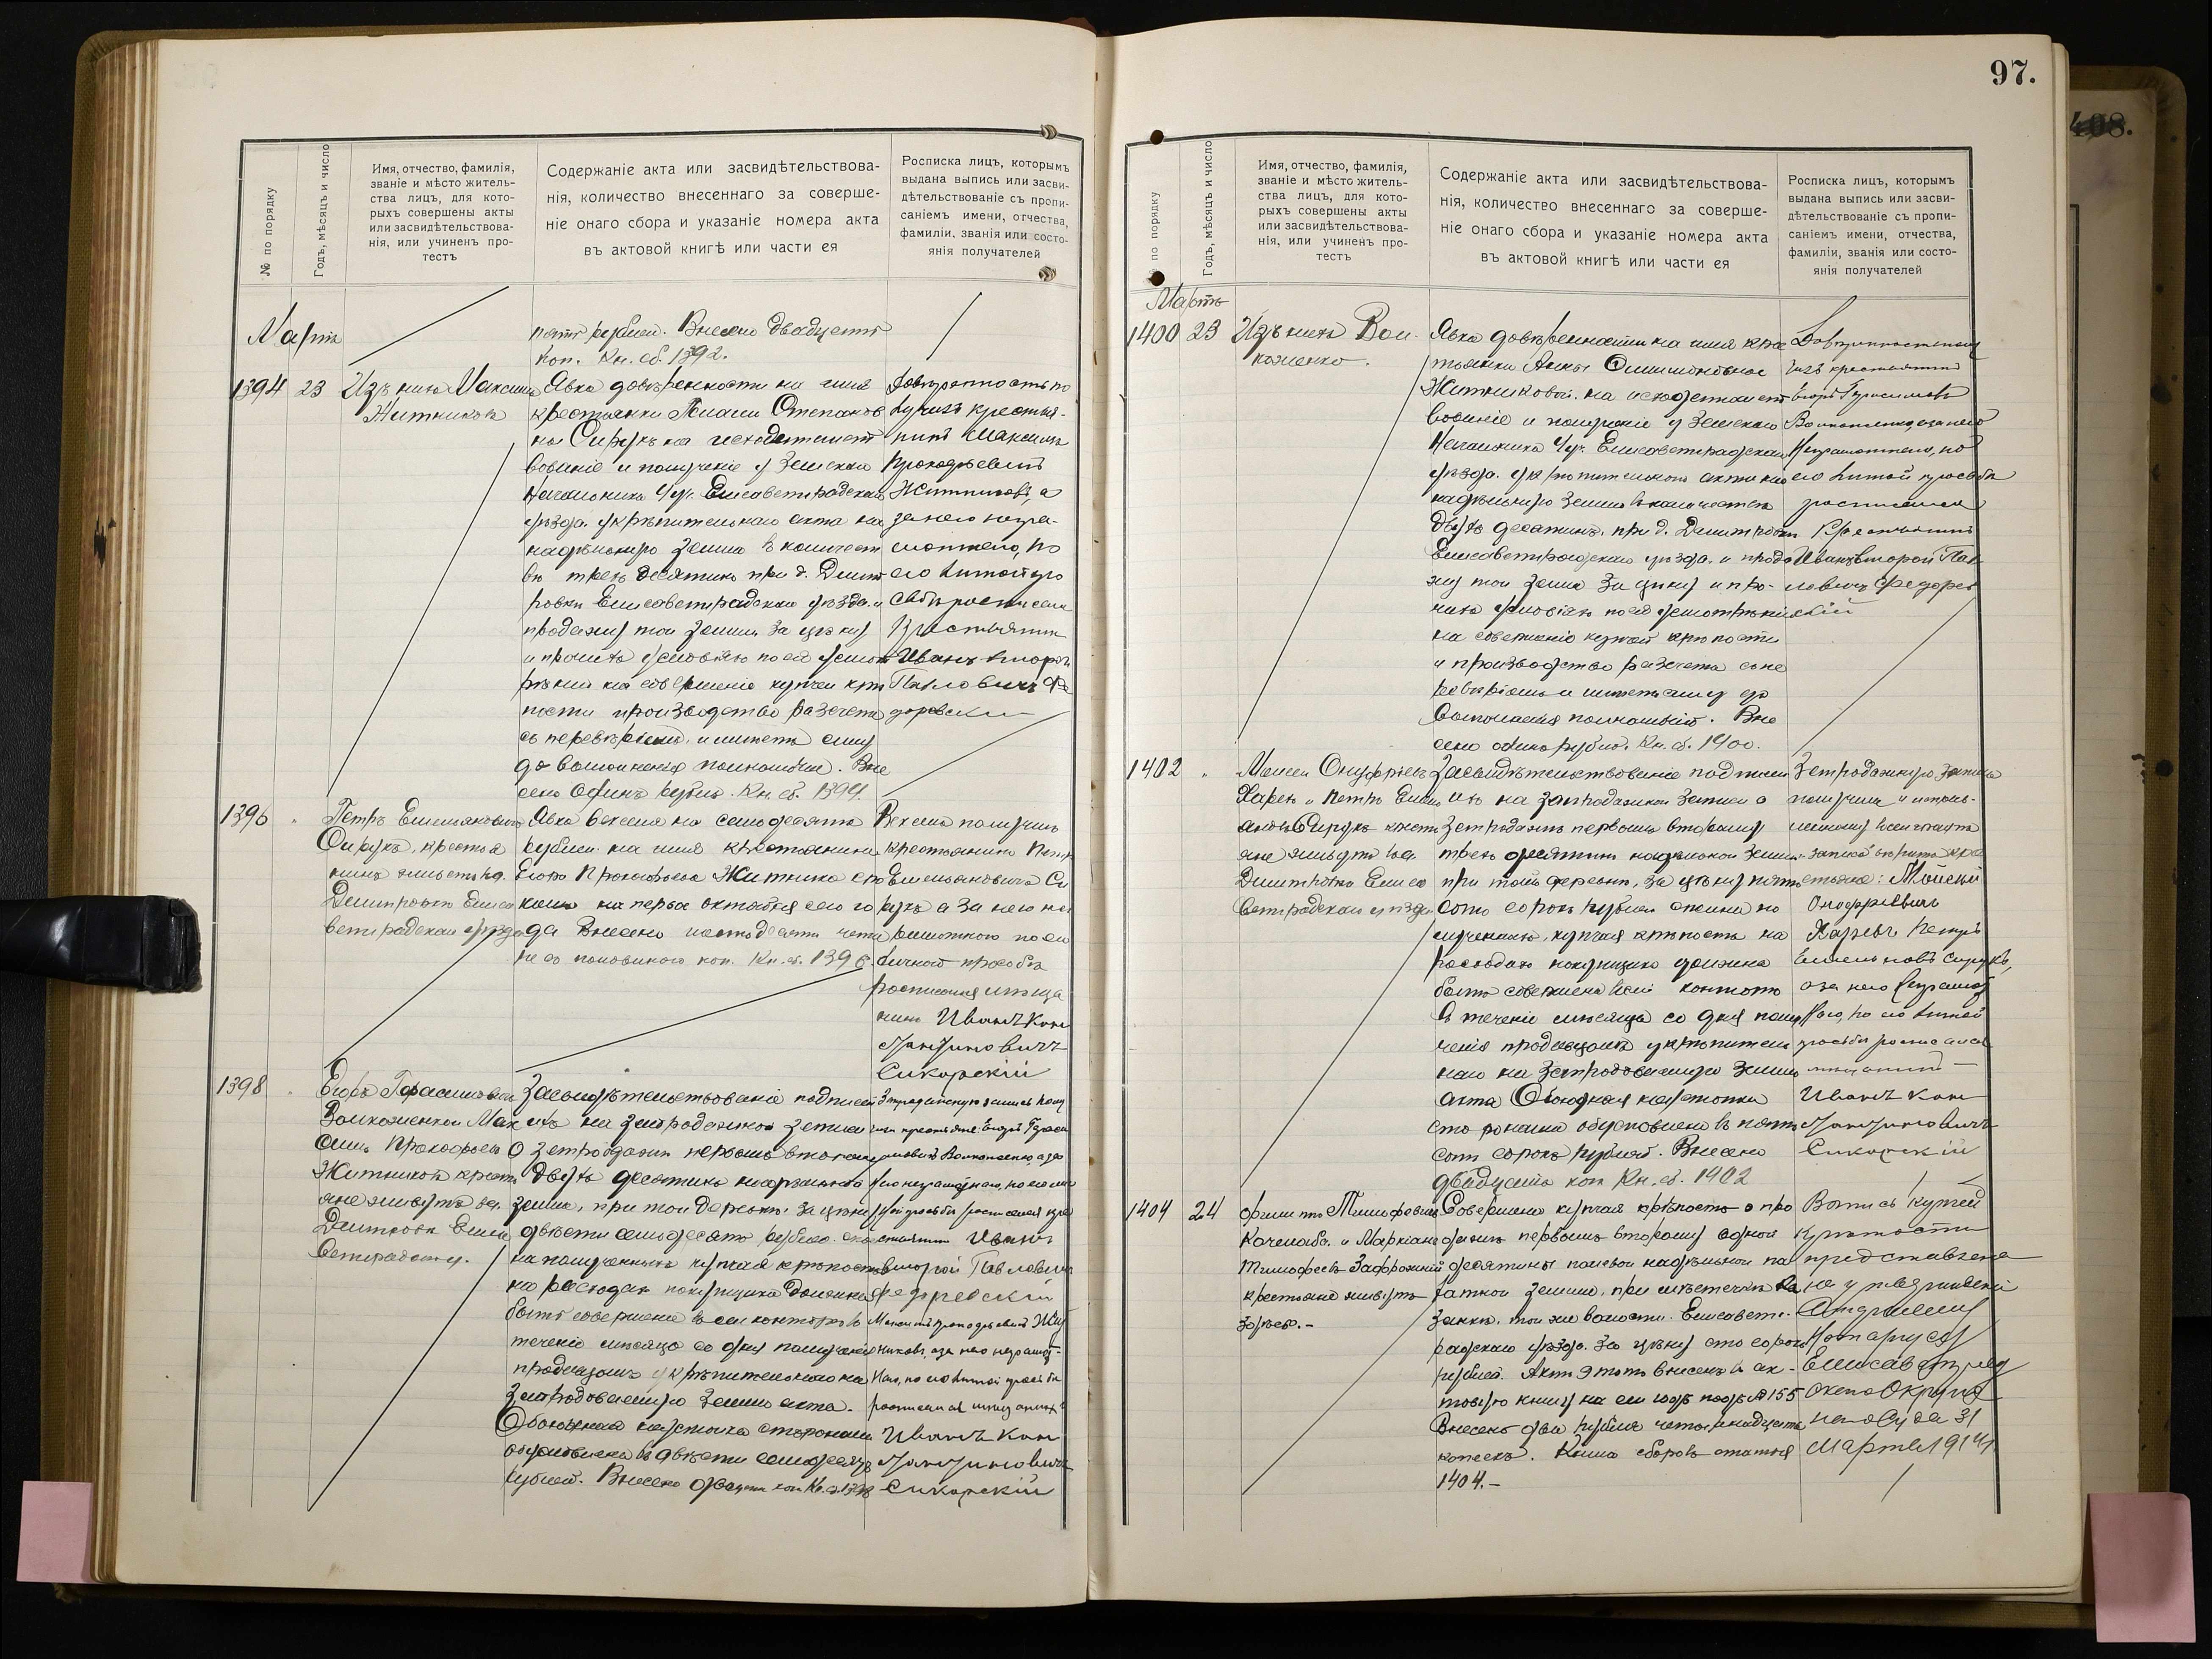 97.
408.
№ по порядку
Годъ, мѣсяцъ и число
Имя, отчество, фамилія,
званіе и мѣсто житель-
ства лицъ, для кото-
рыхъ совершены акты
или засвидѣтельствова-
нія, или учиненъ про-
тестъ
Содержаніе акта или засвидѣтельствова-
нія, количество внесеннаго за соверше-
ніе онаго сбора и указаніе номера акта
въ актовой книгѣ или части ея
Росписка лицъ, которымъ
выдана выпись или засви-
дѣтельствованіе съ пропи-
саніемъ имени, отчества,
фамиліи, званія или состо-
янія получателей
Мартъ
рублей. Внесено двадцать
коп. Кн. сб. 1392.
1394 23
Изъ нихъ Максимъ
Житниковъ
Явка довѣренности на имя
крестьянки Степанов
ны Сирукъ на исходатайст
вованіе и полученіе у Земскаго
Начальника 4 уч. Елисаветградскаго
уѣзда укрѣпительнаго акта на
надѣльную землю въ количест
вѣ трехъ десятинъ при д. Дмит
ровкѣ Елисаветградскаго уѣзда и
продажу той земли за цѣну
и прочимъ условіямъ по ея усмот
рѣнію на совершеніе купчей крѣ
пости производство разсчета
съ перевѣріемъ и имѣетъ силу
до выполненія полномочія. Вне
сено Одинъ рубль. Кн. сб. 1394.
Довѣренность по
лучилъ крестья-
нинъ Максимъ
Прокофьевичъ
Житниковъ, а
за него негра-
мотнаго, по
его личной про
сьбѣ росписался
Крестьянинъ
Иванъ второй
Павловичъ Фе
доровскій
1396 "
Петръ Емельяновичъ
Сирукъ, крестья
нинъ живетъ въ д.
Дмитровкѣ Елиса
ветградскаго уѣзда
Явка векселя на семьдесятъ
рублей на имя крестьянина
Егора Прокофьева Житника сро
комъ на перво октября сего го
да Внесено
коп. Кн. сб. 1396.
Вексель получилъ
крестьянинъ Петръ
Емельяновичъ Си
рукъ а за него не
грамотнаго по его
личной просьбѣ
росписался мѣща
нинъ Иванъ Кон
стантиновичъ
Сикорскій
1398 "
Егоръ Герасимовичъ
Волкоженко и Мак
симъ Прокофьевъ
Житниковъ крестья
не живутъ въ д.
Дмитровкѣ Елиса
ветградскаго у.
Засвидѣтельствованіе подписей
ихъ на запродажной записи
о запродажѣ первымъ второму
двухъ десятинъ надѣльной
земли, при той деревнѣ, за цѣну
двѣсти семьдесятъ рублей. сро
купчая крѣпость
на расходахъ покупщика должна
быть совершена въ сей конторѣ въ
теченіе мѣсяца со дня полученія
продавцомъ укрѣпительнаго на
запродаваемую землю акта.
Обоюдная неустойка сторонами
обусловлена въ двѣсти семьдесятъ
рублей. Внесено двадцать коп. Кн. сб. 1398
Запродажную запись полу
чили крестьяне: Егоръ Гераси
мовичъ Волкоженко, а за
него неграмотнаго, по его лич
ной просьбѣ росписался кре
стьянинъ Иванъ
второй Павловичъ
Федоровскій
Максимъ Прокофьевичъ Жит
никовъ, а за него неграмот-
наго, по его личной просьбѣ
росписался мѣщанинъ
Иванъ Кон
стантиновичъ
Сикорскій
№ по порядку
Годъ, мѣсяцъ и число
Имя, отчество, фамилія,
званіе и мѣсто житель-
ства лицъ, для кото-
рыхъ совершены акты
или засвидѣтельствова-
нія, или учиненъ про-
тестъ
Содержаніе акта или засвидѣтельствова-
нія, количество внесеннаго за соверше-
ніе онаго сбора и указаніе номера акта
въ актовой книгѣ или части ея
Росписка лицъ, которымъ
выдана выпись или засви-
дѣтельствованіе съ пропи-
саніемъ имени, отчества,
фамиліи, званія или состо-
янія получателей
Мартъ
1400 23
Изъ нихъ Вол-
коженко.
Явка довѣренности на имя кре
стьянки Анны
Житниковой. на исходатайст
вованіе и полученіе у Земскаго
Начальника 4 уч. Елисаветградскаго
уѣзда. укрѣпительнаго акта на
надѣльную землю въ количествѣ
двухъ десятинъ, при д. Дмитровкѣ
Елисаветградскаго уѣзда. и прода
жу той земли за цѣну и про-
чимъ условіямъ по ея усмотрѣнію
на совершеніе купчей крѣпости
и производство разсчета съ пе
ревѣріемъ и имѣетъ силу до
выполненія полномочія. Вне
сено одинъ рубль. Кн. сб. 1400.
Довѣренность
чилъ крестьянинъ
Егоръ Герасимовъ
Волкоженко, а за него
Неграмотнаго, по
его личной просьбѣ
росписался
Крестьянинъ
Иванъ второй Пав
ловичъ Федоров
скій
1402 "
Моисей Онуфріевъ
Харевъ и Петръ Емель
яновъ Сирукъ кресть
яне живутъ въ д.
Дмитровкѣ Елиса
ветградскаго уѣзда
Засвидѣтельствованіе подписей
ихъ на запродажной записи о
запродажѣ первымъ второму
трехъ десятинъ надѣльной земли
при той деревнѣ, за цѣну пять
сотъ сорокъ рублей
купчая крѣпость на
расходахъ покупщика должна
быть совершена въ сей конторѣ
въ теченіе мѣсяца со дня полу
ченія продавцомъ укрѣпитель
наго на запродаваемую землю
акта Обоюдная неустойка
сторонами обусловлена въ пять
сотъ сорокъ рублей. Внесено
двадцать коп Кн. сб. 1402
Запродажную запись
получили
кре
стьяне: Моисей
Онуфріевичъ
Харевъ Петръ
Емельяновъ Сирукъ,
а за него неграмот
наго, по его личной
просьбѣ росписался
мѣщанинъ
Иванъ Кон
стантиновичъ
Сикорскій
1404 24
Тимофеевичъ
Кочелаба. и Маркіанъ
Тимофеевъ
крестьяне живутъ
Совершена купчая крѣпость о про
дажѣ первымъ второму одной
десятины полевой надѣльной па
хатной земли, при мѣстечкѣ Ка
занкѣ, той же волости. Елисавет-
градскаго уѣзда. за цѣну сто сорокъ
рублей. Актъ этотъ внесенъ въ ак-
товую книгу на сей годъ подъ № 155
Внесено два рубля четырнадцать
копѣекъ. Книга сборовъ статья
1404.-
Выпись купчей
крѣпости
представлена
Старшему
Нотаріусу
Елисаветград
скаго Окружна
го Суда 31
Марта 1914.